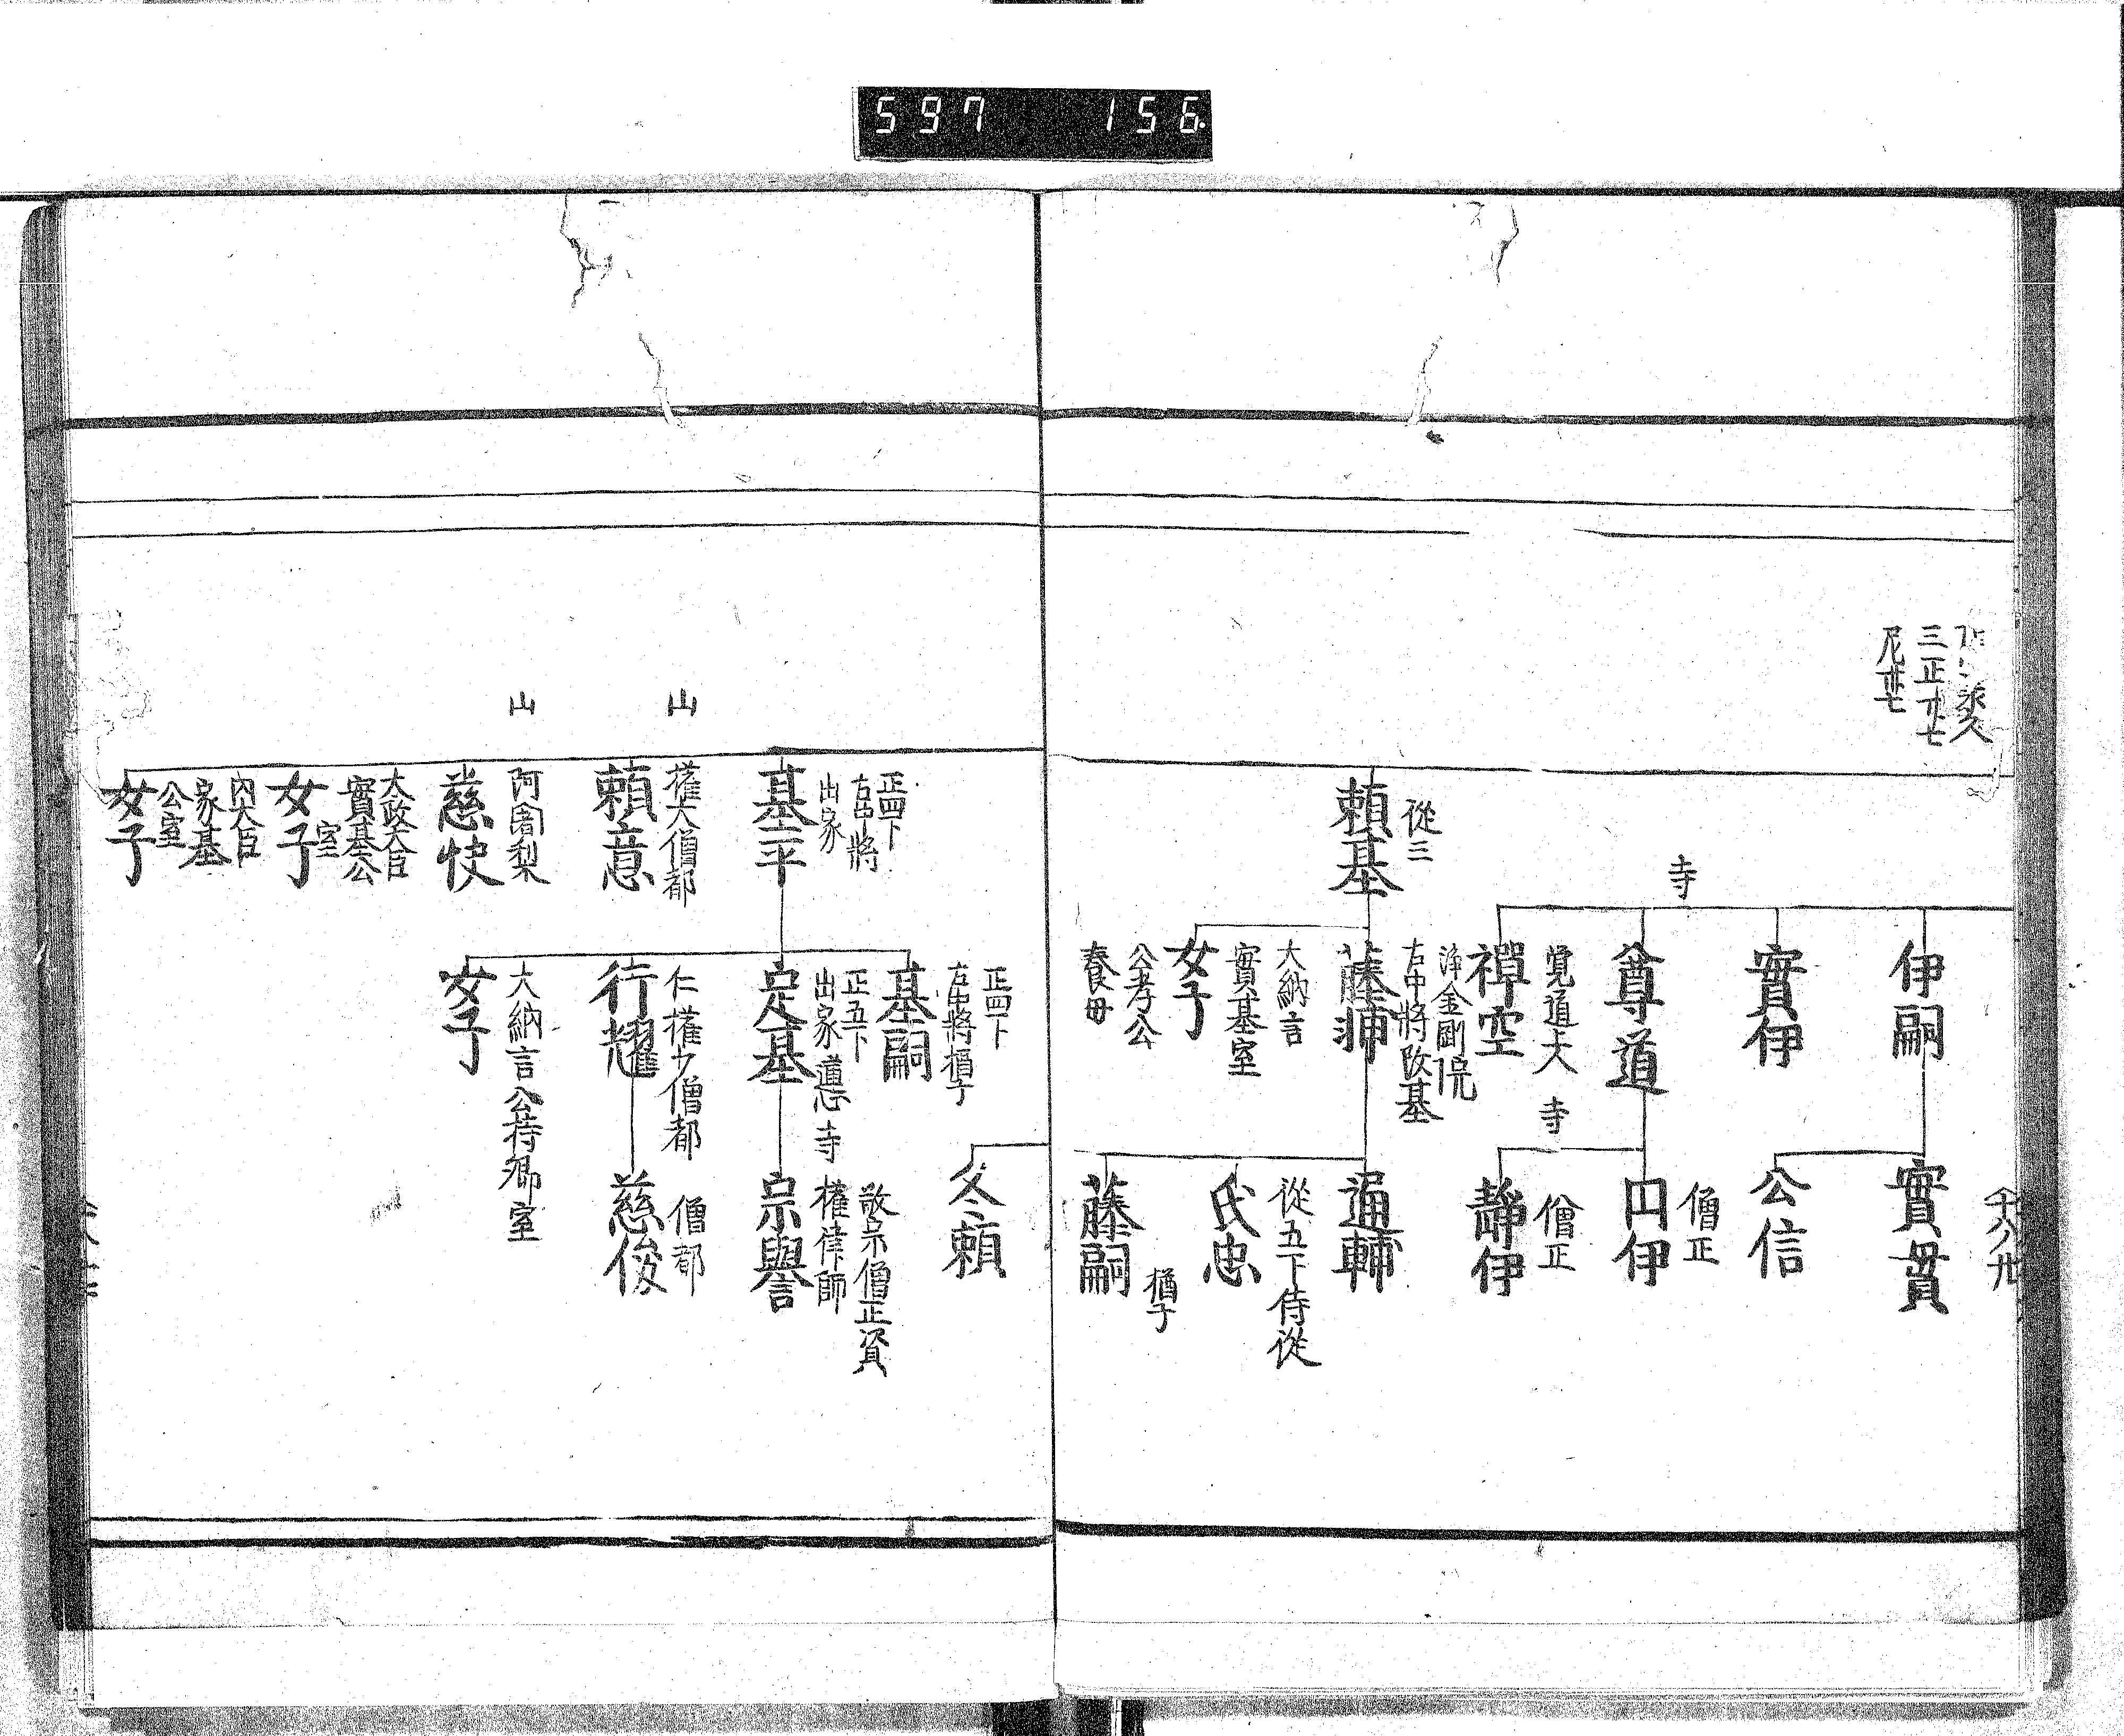 597 156
三正廿七
尼廿七
伊嗣
實貫
實伊
公信
寺
尊道
僧正
円伊
覚道大
禅空
寺
僧正
靜伊
從三
頼基
浄金剛院
右中將改基
藤輔
通輔
從五下侍從
氏忠
猶子
藤嗣
大納言
實基室
女子
公孝公
養母
冬頼
正四下
右中將
出家
基平
正四下
左中將猶子
基嗣
正五下
出家
定基
寺
敬宗僧正資
權律師
宗譽
山
權大僧都
頼意
仁權少僧都
行耀
僧都
慈俊
大納言公持卿室
女子
山
阿闍梨
慈快
大政大臣
實基公
室
女子
內大臣
家基
公室
女子